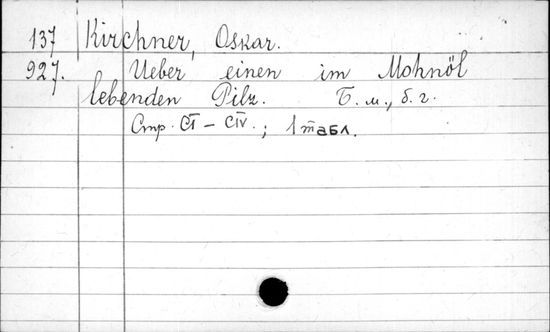 137 Kirchner, Oskar.
927. Ueber einen im Mohnöl
lebenden Pilz. Б. м., б. г.
Стр. CI – CIV.; 1 табл.